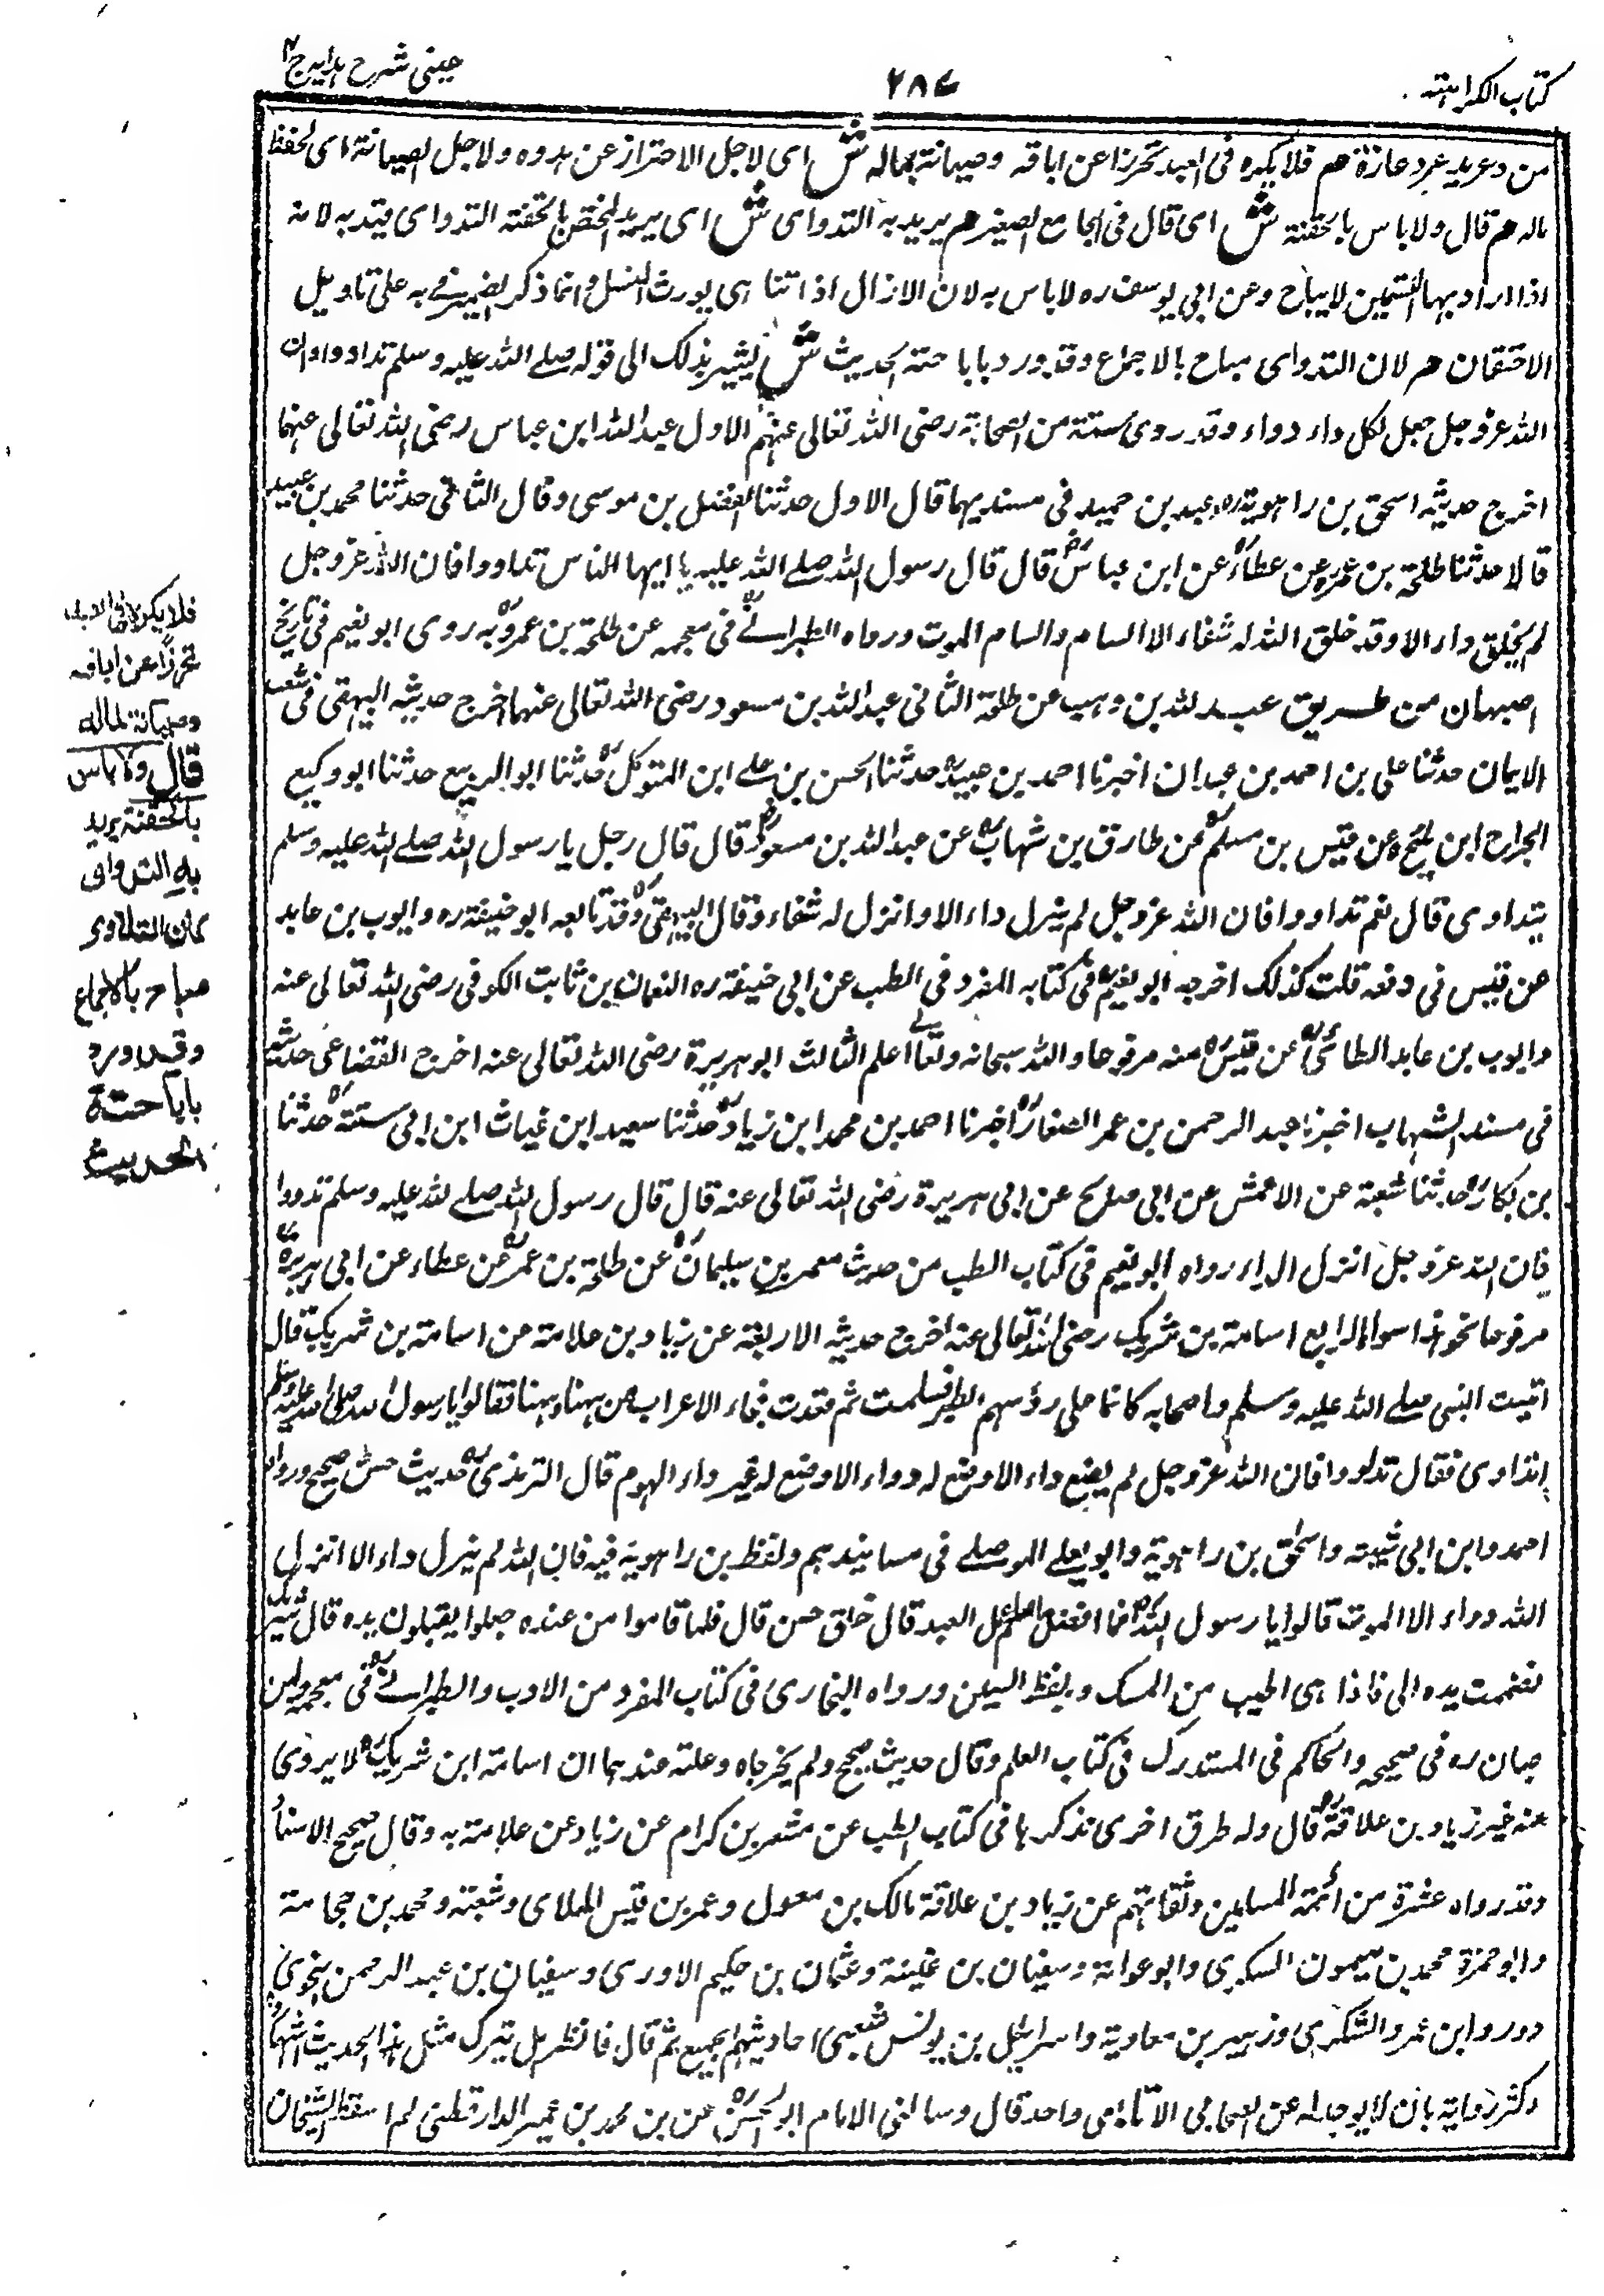 كتاب الكراهية
٢٨٧
عينى شرح هدايه ج ٤
من دعر يدعر دعارة هم فلا يكره فى العبد تحرزا عن اباقه وصيانة لماله ش اى لاجل الاحتراز عن هدوه ولاجل الصيانة اى لحفظ
ماله هم قال ولا باس بالحقنة ش اى قال فى الجامع الصغير هم يريد به التداوى ش اى يريد المحتقن بالحقنة التداوى قيد به لانه
اذا اراد بها التسمين لا يباح وعن ابى يوسف ره لا باس به لان الازال اذا تنا هى يورث السل وانما ذكر الضمير فى به على تاويل
الاحتقان هم لان التداوى مباح بالاجماع وقد ورد باباحته الحديث ش يشير بذلك الى قوله صلے الله عليه وسلم تداووا فان
الله عز وجل جعل لكل داء دواء وقد روى ستة من الصحابة رضى الله تعالى عنهم الاول عبد الله ابن عباس رضى الله تعالى عنهما
اخرج حديثه اسحق بن راهوية ره وعبد بن حميد فى مسنديهما قال الاول حدثنا الفضل بن موسى وقال الثانى حدثنا محمد بن عبيد
قالا حدثنا طلحة بن عمرو عن عطاء عن ابن عباس رض قال قال رسول الله صلے الله عليه يا ايها الناس تداووا فان الله عز وجل
لم يخلق داء الا وقد خلق الله له شفاء الا السام والسام الموت ورواه الطبرانے فى معجمه عن طلحة بن عمرو به روى ابو نعيم فى تاريخ
اصبهان من طريق عبد لله بن وهب عن طلحة الثانى عبد الله بن مسعود رضى الله تعالى عنهما اخرج حديثه البيهقى فى شعب
الايمان حدثنا على بن احمد بن عبدان اخبرنا احمد بن عبيد حدثنا الحسن بن علے ابن المتوكل حدثنا ابو الربيع حدثنا ابو وكيع
الجراح ابن مليح عن قيس بن مسلم عن طارق بن شهاب عن عبد الله بن مسعود قال قال رجل يا رسول الله صلے الله عليه وسلم
يتداوى قال نعم تداووا فان الله عز وجل لم ينزل داء الا وانزل له شفاء وقال البيهقى وقد تابعه ابو حنيفة ره وايوب بن عابد
عن قيس فى رفعه قلت كذلك اخرجه ابو نعيم فى كتابه المفرد فى الطب عن ابى حنيفة ره النعمان بن ثابت الكوفى رضى الله تعالى عنه
وايوب بن عابد الطائى عن قيس منه مرفوعا والله سبحانه وتعالى اعلم الثالث ابو هريرة رضى الله تعالى عنه اخرج القضاعى حديثه
فى مسند الشهاب اخبرنا عبد الرحمن بن عمر الصفار اخبرنا احمد بن محمد ابن زياد حدثنا سعيد ابن غياث ابن ابى ستة حدثنا
بن بكار حدثنا شعبة عن الاعمش عن ابى صالح عن ابى هريرة رضى الله تعالى عنه قال قال رسول الله صلے لله عليه وسلم تدووا
فان الله عز وجل انزل الداء رواه ابو نعيم فى كتاب الطب من حديث معمر بن سليمان عن طلحة بن عمر عن عطاء عن ابى هريرة
مرفوعا نحوه سواء الرابع اسامة بن شريك رضى الله تعالى عنه اخرج حديثه الاربعة عن زياد بن علامة عن اسامة بن شريك قال
اتيت النبى صلے الله عليه وسلم واصحابه كانما على رؤسهم الطير فسلمت ثم قعدت فجاء الاعراب من ههنا وههنا فقالوا يا رسول الله صلى الله عليه وسلم
انتداوى فقال تداووا فان الله عز وجل لم يضع داء الا وضع له دواء الا وضع له غير داء الهرم قال الترمذى حديث حسن صحيح ورواه
احمد وابن ابى شيبة واسحٰق بن راهوية وابو يعلے الموصلے فى مسانيدهم ولفظ بن راهوية فيه فان الله لم ينزل داء الا انزل
الله دواء الا الموت قالوا يا رسول الله فما افضل ما اعطى العبد قال خلق حسن قال فلما قاموا من عنده جعلوا يقبلون يده قال شريك
فضممت يده الى فاذا هى اطيب من المسك وبلفظ السنن ورواه البخارى فى كتاب المفرد من الادب والطبرانے فى معجمه وابن
حبان ره فى صحيحه والحاكم فى المستدرك فى كتاب العلم وقال حديث صحيح ولم يخرجاه وعلته عندهما ان اسامة ابن شريك لا يروى
عنه غير زياد بن علاقة قال وله طرق اخرى نذكرها فى كتاب الطب عن مسعر بن كرام عن زياد عن علامة به وقال صحيح الاسناد
وقد رواه عشرة من ائمة المسلمين وثقاتهم عن زياد بن علاقة مالك بن معول وعمر بن قيس الملائى وشعبة ومحمد بن حجامة
وابو حمزة محمد بن ميمون السكرى وابو عوانة وسفيان بن عيينة وعثمان بن حكيم الاورى وسفيان بن عبد الرحمن النحوى
دورو ابن عمر والشكرى وزهير بن معاوية واسرائيل بن يونس شعبى احاديثهم الجميع ثم قال فانظر هل يترك مثل هذا الحديث اشتهاره
وكثر رواية بان لا يوجد له عن الصحابى الا تابعى واحد قال وسالنى الامام ابو الحسن عن بن محمد بن عمير الدارقطنى لم اسقط الشيخان
فلا يكره فى العبد
تحرزا عن اباقه
وصيانة لماله
قال ولا باس
بالحقنة يريد
به التداوى
لان التداوى
مباح بالاجماع
وقد ورد
باباحته
الحديث